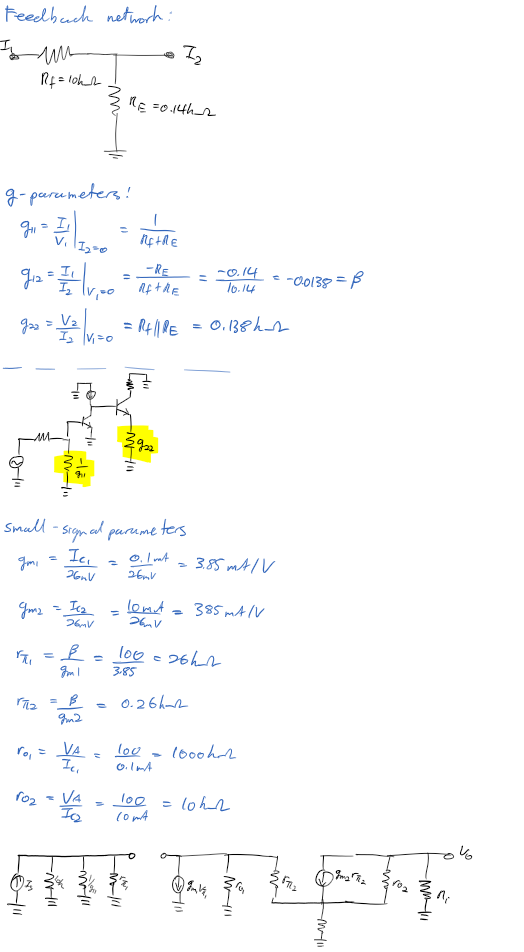 Feedback network:
I₁
I₂
Rf = 10kΩ
RE = 0.14kΩ
g-parameters:
g₁₁ = I₁/V₁ |I₂=0 = 1/(Rf+RE)
g₁₂ = I₁/I₂ |V₁=0 = -RE/(Rf+RE) = -0.14/10.14 = -0.0138 = β
g₂₂ = V₂/I₂ |V₁=0 = Rf||RE = 0.138kΩ
1/g₁₁
g₂₂
small-signal parameters
gm₁ = Ic₁/26mV = 0.1mA/26mV = 3.85 mA/V
gm₂ = Ic₂/26mV = 10mA/26mV = 385 mA/V
rπ₁ = β/gm1 = 100/3.85 = 26kΩ
rπ₂ = β/gm2 = 0.26kΩ
ro₁ = VA/Ic₁ = 100/0.1mA = 1000kΩ
ro₂ = VA/Ic₂ = 100/10mA = 10kΩ
Vo
Is
1/g₁₁
rπ₁
ro₁
rπ₂
gm₂rπ₂
ro₂